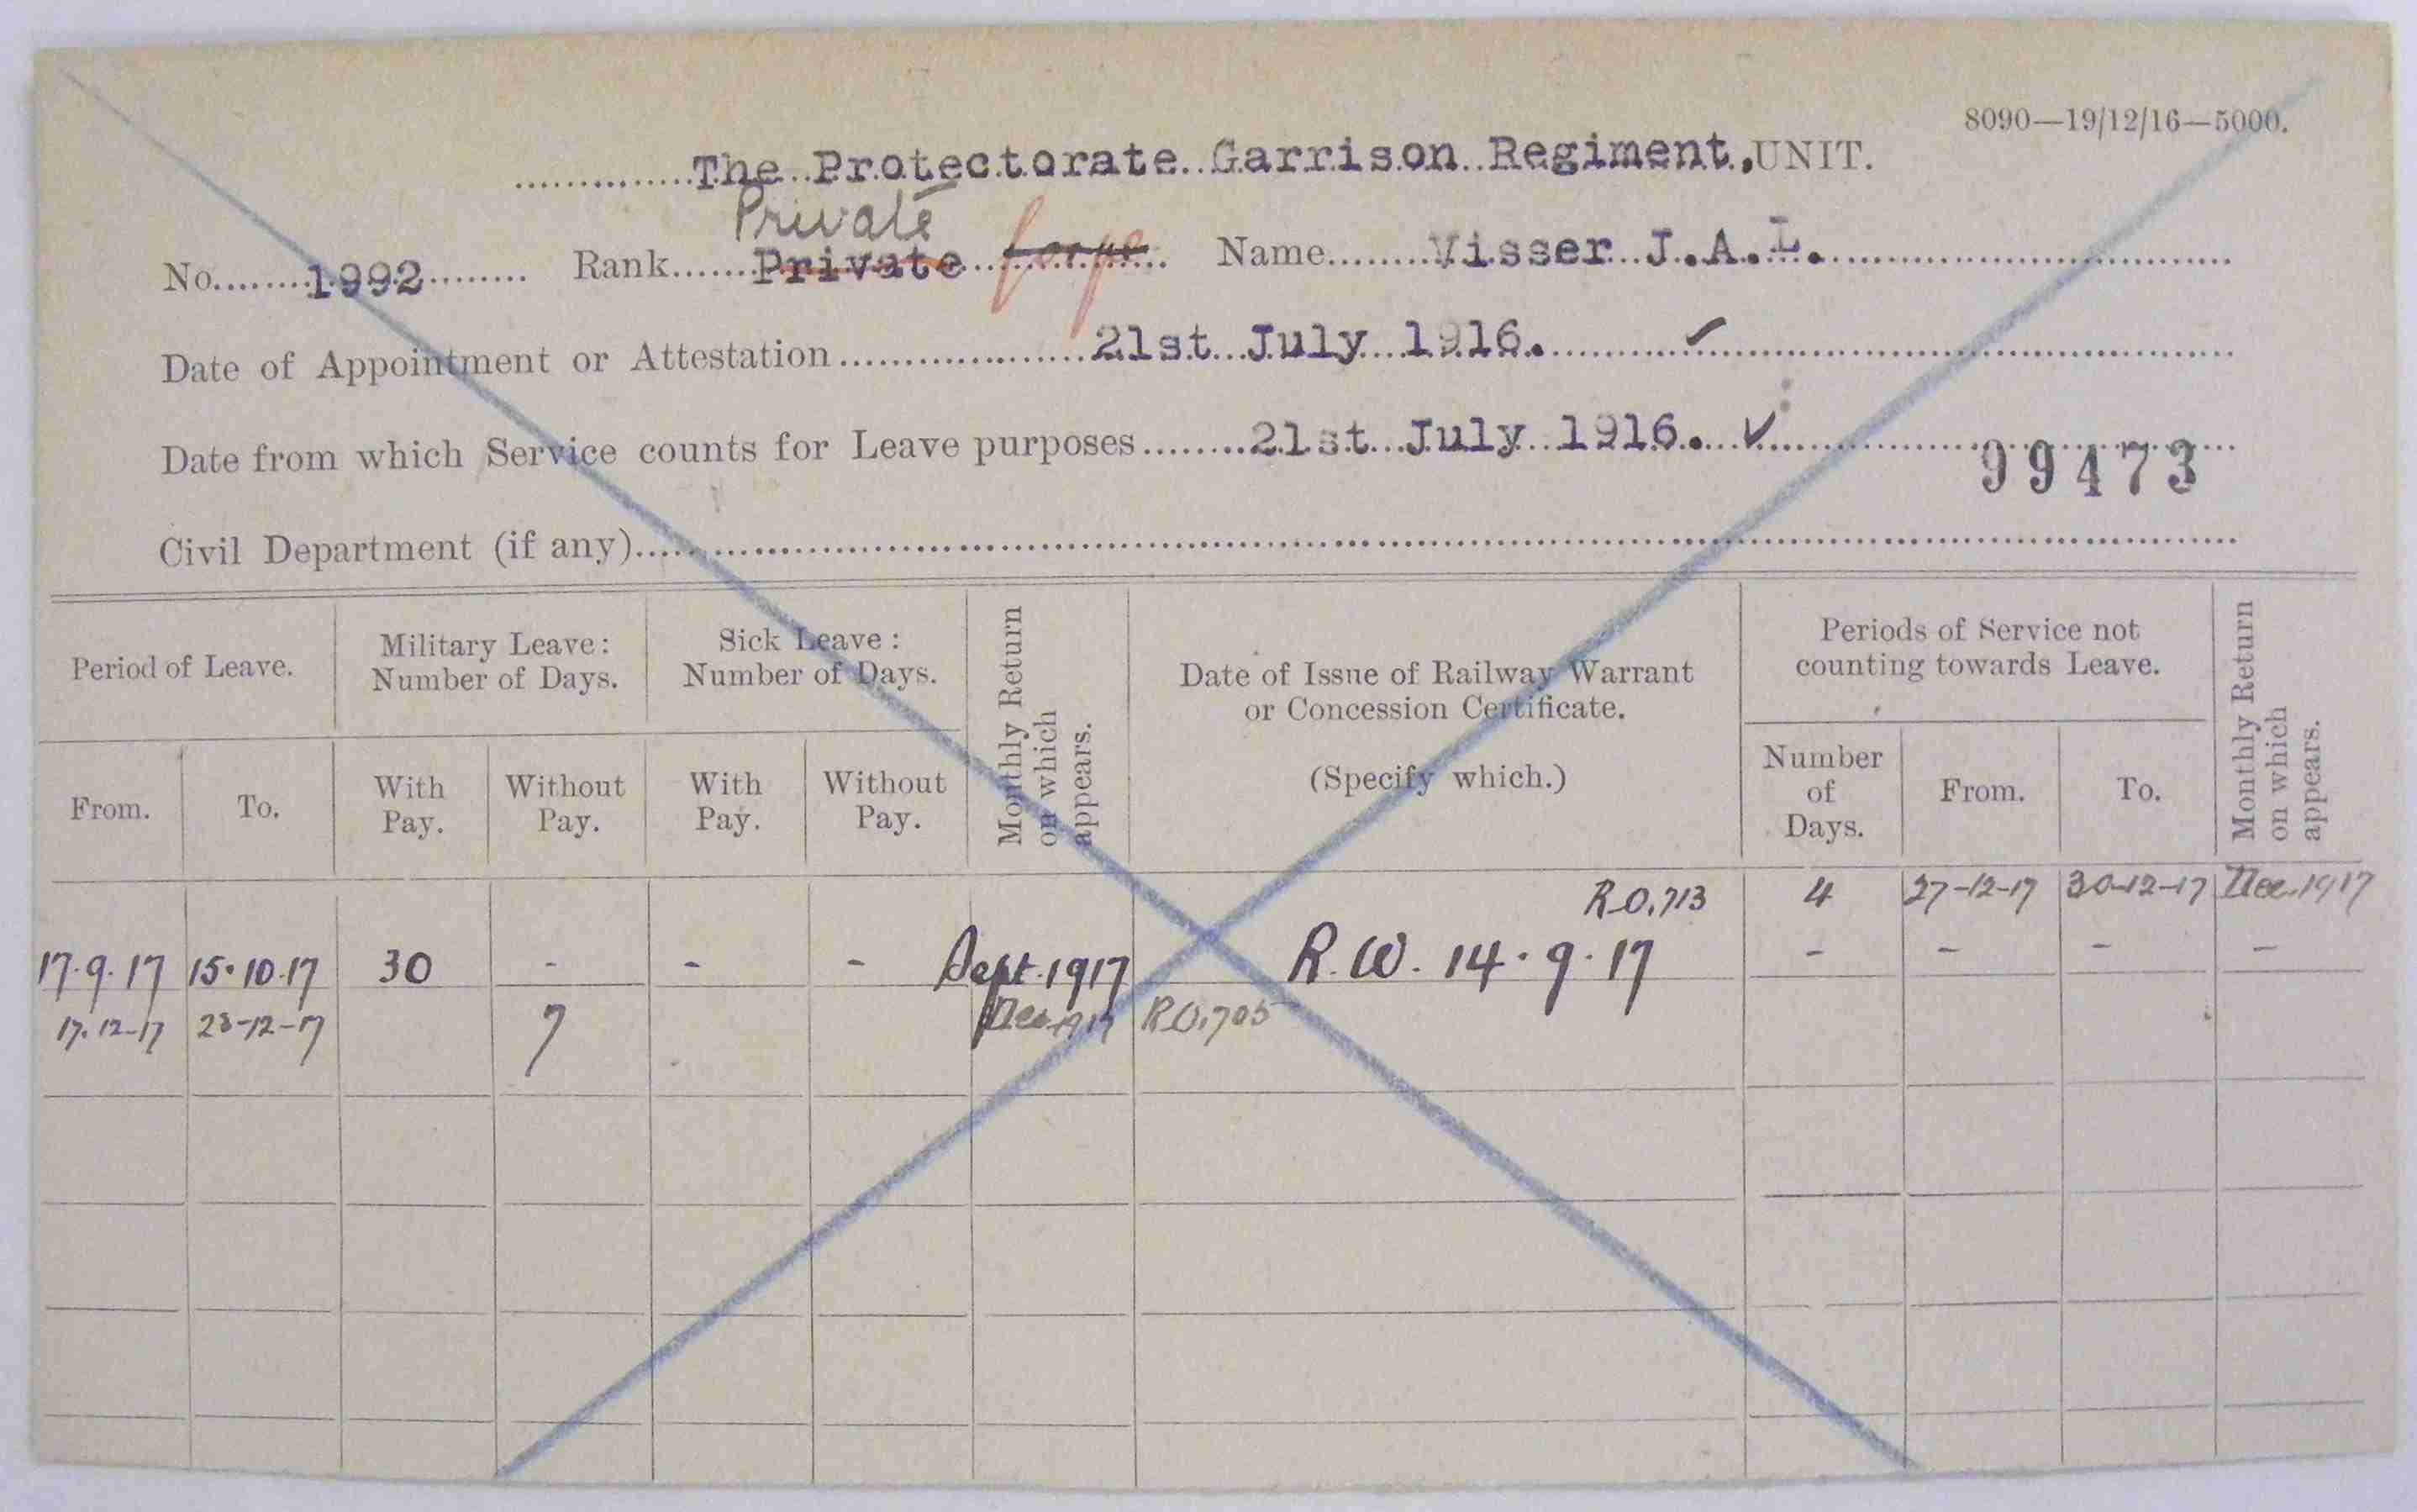 8090—19/12/16—5000.
The Protectorate Garrison Regiment, UNIT.
Private
No. 1992 Rank Private Corpl Name Visser J.A.L.
Date of Appointment or Attestation 21st July 1916. ✓
Date from which Service counts for Leave purposes 21st July 1916. ✓
99473
Civil Department (if any)
Period of Leave. Military Leave: Number of Days. Sick Leave: Number of Days. Monthly Return on which appears. Date of Issue of Railway Warrant or Concession Certificate. (Specify which.) Periods of Service not counting towards Leave. Monthly Return on which appears.
From. To. With Pay. Without Pay. With Pay. Without Pay. Number of Days. From. To.
R.O. 713 4 27-12-17 30-12-17 Dec. 1917
17.9.17 15.10.17 30 - - - Sept. 1917 R.W. 14.9.17 - - - -
17.12-17 23-12-17 7 Dec 1917 R.O. 705